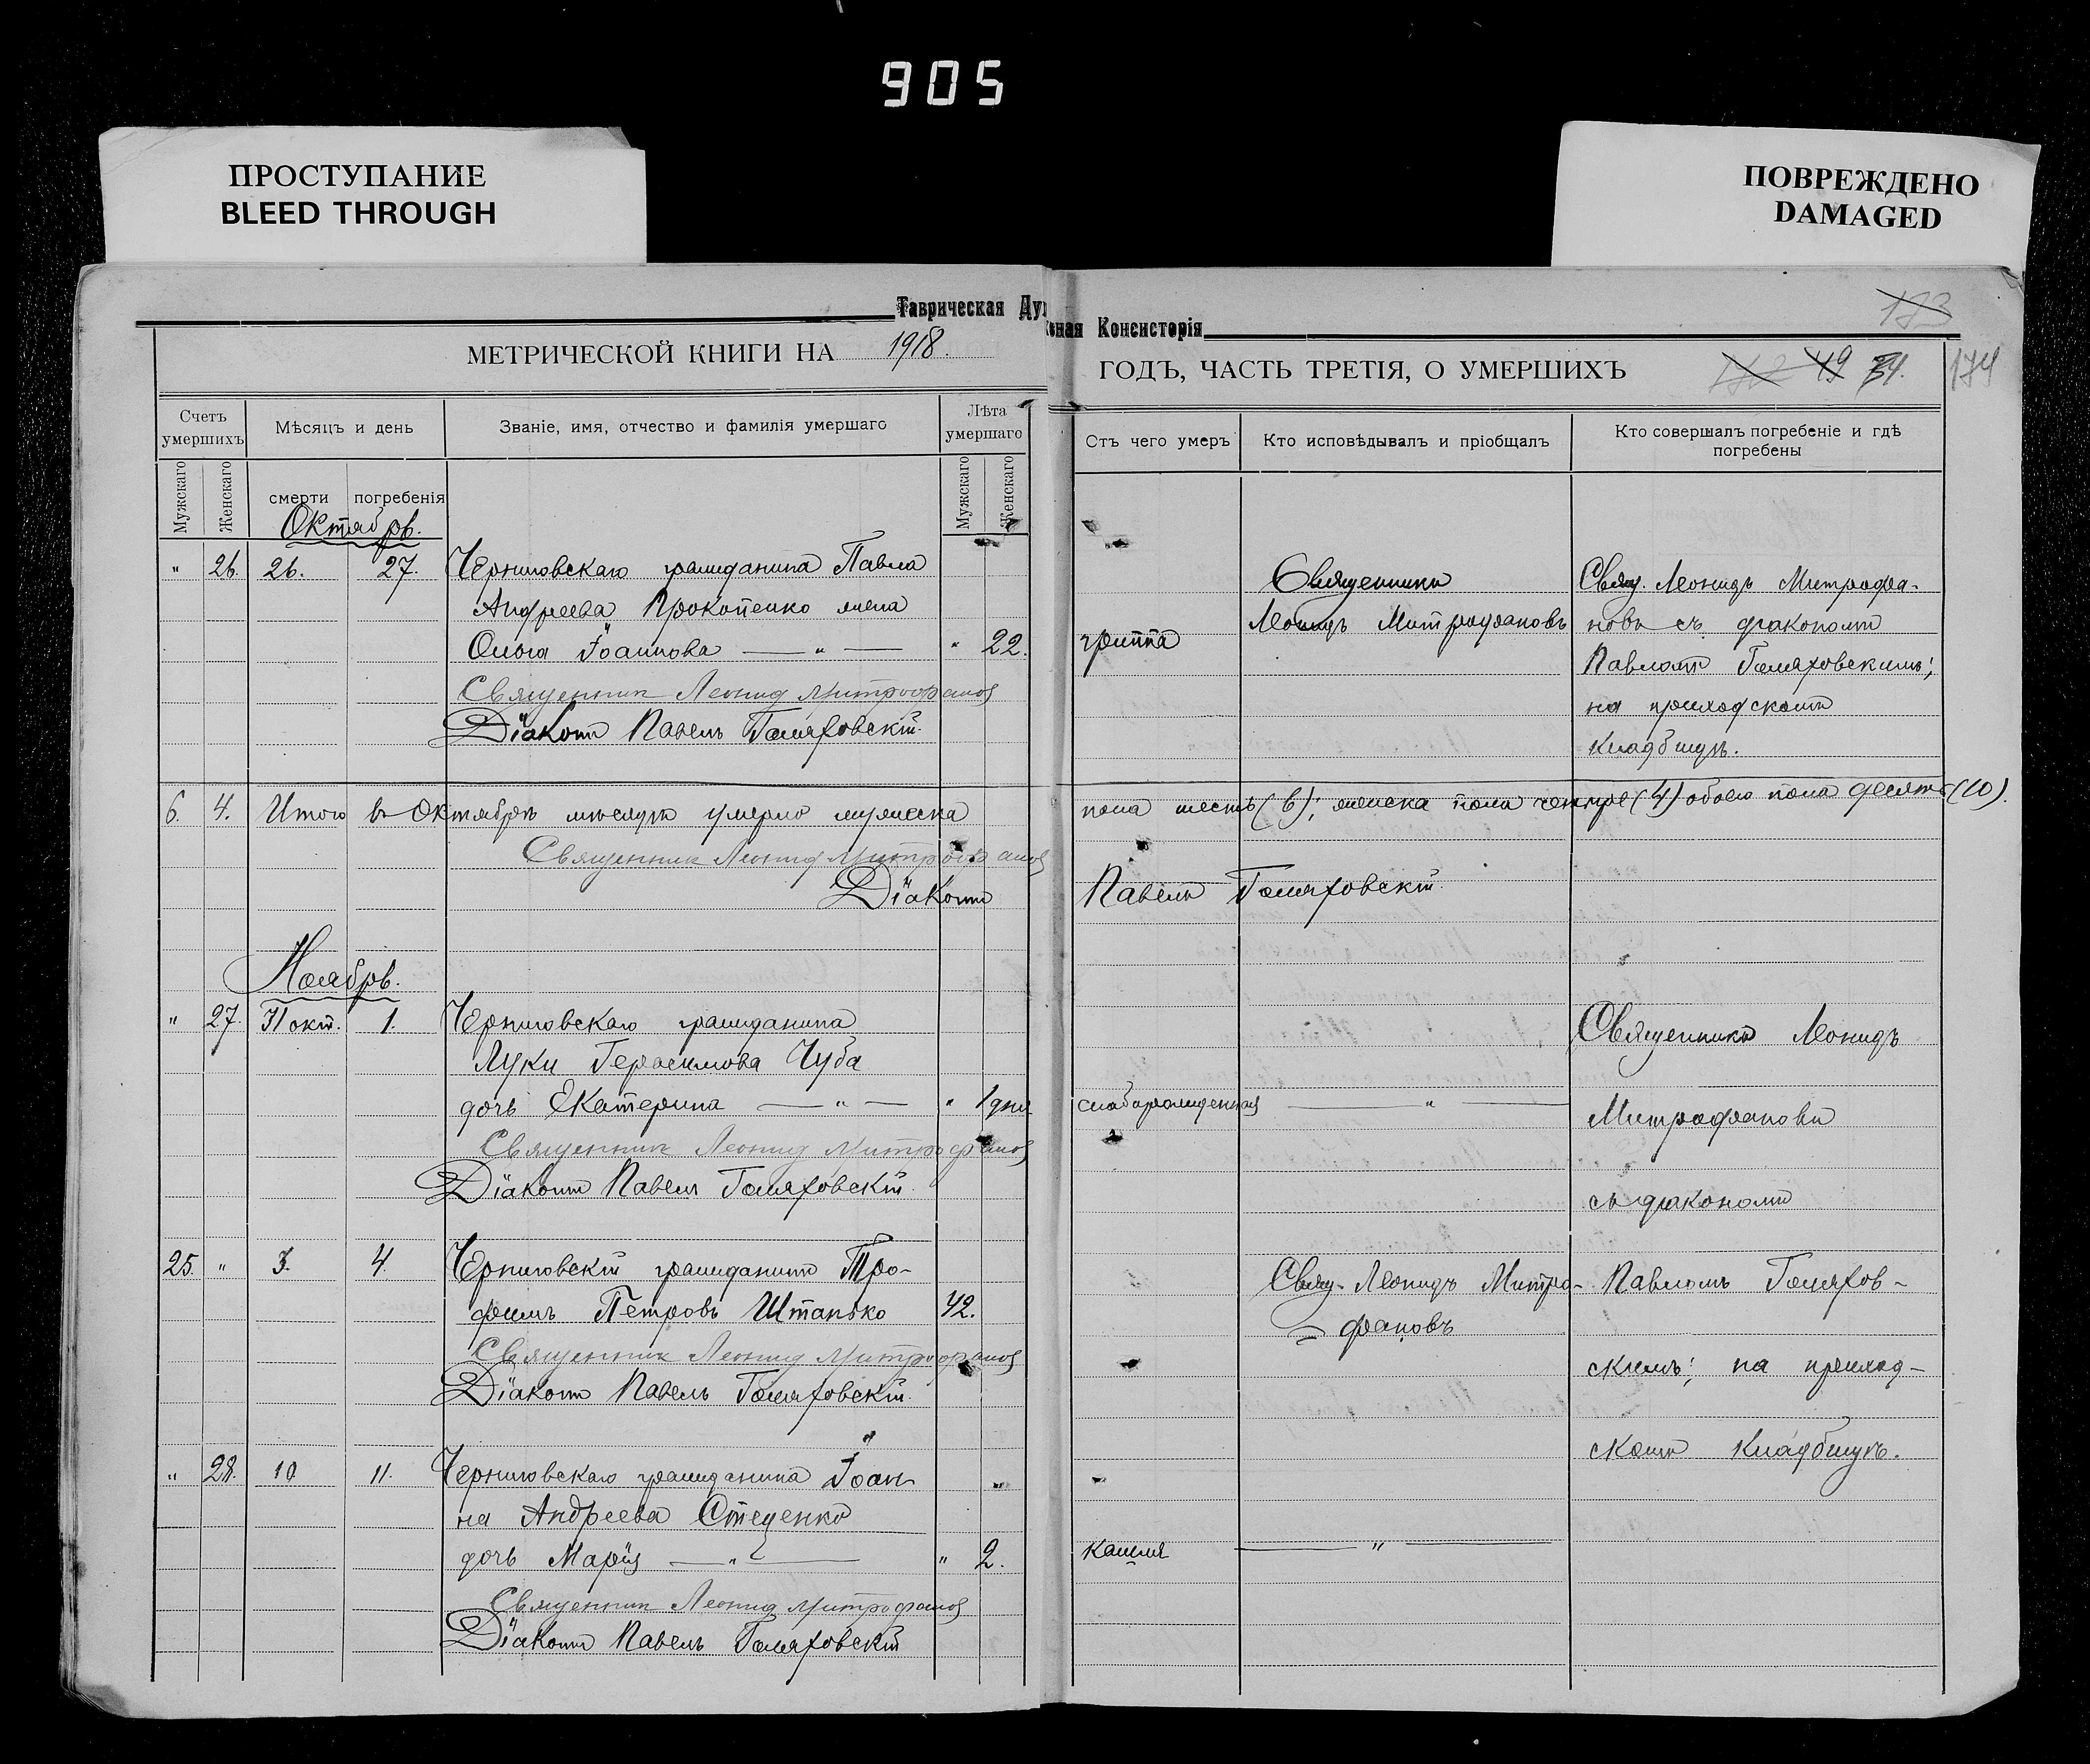 905
ПРОСТУПАНИЕ
BLEED THROUGH
ПОВРЕЖДЕНО
DAMAGED
Таврическая Духовная Консисторія
173
МЕТРИЧЕСКОЙ КНИГИ НА 1918.
ГОДЪ, ЧАСТЬ ТРЕТІЯ, О УМЕРШИХЪ
49 174
Счетъ умершихъ
Мѣсяцъ и день
Званіе, имя, отчество и фамилія умершаго
Лѣта умершаго
Стъ чего умеръ
Кто исповѣдывалъ и пріобщалъ
Кто совершалъ погребеніе и гдѣ погребены
Мужскаго
Женскаго
смерти
погребенія
Мужскаго
Женскаго
Октябрь.
" 26. 26. 27. Черниговскаго гражданина Павла
Андреева Прокопенко жена
Ольга Іоаннова — " — " 22.
Священник Леонид Митрофанов
Діаконъ Павелъ Гомяховскій.
гриппа
Священникъ
Леонидъ Митрофановъ
Свящ. Леонидъ Митрофа-
новъ съ діакономъ
Павломъ Гомяховскимъ;
на приходскомъ
кладбищѣ.
6. 4. Итого въ Октябрѣ мѣсяцѣ умерло мужеска
пола шесть (6); женска пола четыре (4) обоего пола десять (10).
Священник Леонид Митрофанов
Діаконъ Павелъ Гомяховскій.
Ноябрь.
" 27. 31 окт. 1. Черниговскаго гражданина
Луки Герасимова Чуба
дочь Екатерина — " — " 1 дня
Священник Леонид Митрофанов
Діаконъ Павелъ Гомяховскій.
слаборожденная — " —
Священникъ Леонидъ
Митрофановъ
съ діакономъ
25. " 3. 4. Черниговскій гражданинъ Тро-
фимъ Петровъ Штанько 42.
Священник Леонид Митрофанов
Діаконъ Павелъ Гомяховскій.
Свящ. Леонидъ Митро-
фановъ
Павломъ Гомяхов-
скимъ; на приход-
скомъ кладбищѣ.
" 28. 10. 11. Черниговскаго гражданина Іоан-
на Андреева Стеценко
дочь Марія — " — " 2.
Священник Леонид Митрофанов
Діаконъ Павелъ Гомяховскій
кашля — " —